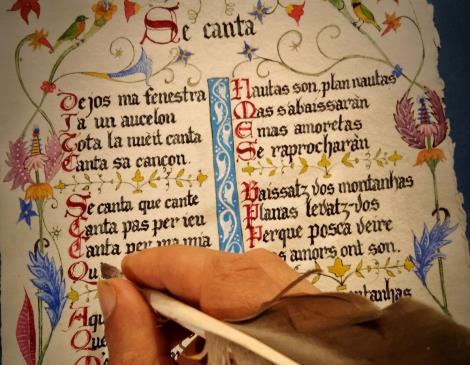 Se canta
Dejos ma fenestra
Ia un aucelon
Tota la nuèit canta
Canta sa cançon.
Se canta que cante
Canta pas per ieu
Canta per ma mia
Qu
Aqu
Nautas son, plan nautas
Mas s'abaissaràn
E mas amoretas
Se raprocharàn
Baissatz vos montanhas
Planas levatz-vos
Perque posca veire
amors ont son.